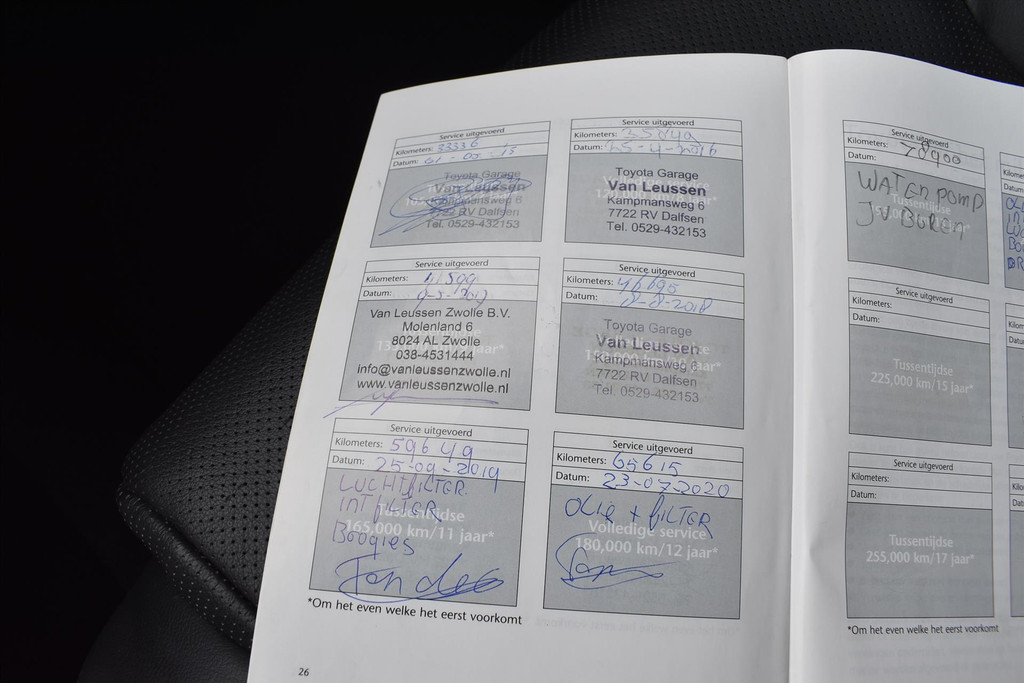 Service uitgevoerd
Kilometers: 33336
Datum: 01-05-15
Toyota Garage
Van Leussen
Kampmansweg 6
7722 RV Dalfsen
Tel. 0529-432153
Service uitgevoerd
Kilometers:
Datum: 25-4-2016
Toyota Garage
Van Leussen
Kampmansweg 6
7722 RV Dalfsen
Tel. 0529-432153
Service uitgevoerd
Kilometers: 41509
Datum:
Van Leussen Zwolle B.V.
Molenland 6
8024 AL Zwolle
038-4531444
info@vanleussenzwolle.nl
www.vanleussenzwolle.nl
Service uitgevoerd
Kilometers:
Datum: 8-8-2018
Toyota Garage
Van Leussen
Kampmansweg 6
7722 RV Dalfsen
Tel. 0529-432153
Service uitgevoerd
Kilometers: 59649
Datum: 25-09-2019
LUCHTFILTER
INT FILTER
Boogies
Tussentijdse
165,000 km/11 jaar*
Service uitgevoerd
Kilometers: 65615
Datum: 23-07-2020
OLIE + FILTER
Volledige service
180,000 km/12 jaar*
*Om het even welke het eerst voorkomt
26
Service uitgevoerd
Kilometers: 78900
Datum:
WATERPOMP
Tussentijdse
Kilometers:
Datum:
Service uitgevoerd
Kilometers:
Datum:
Tussentijdse
225,000 km/15 jaar*
Service uitgevoerd
Kilometers:
Datum:
Tussentijdse
255,000 km/17 jaar*
*Om het even welke het eerst voorkomt